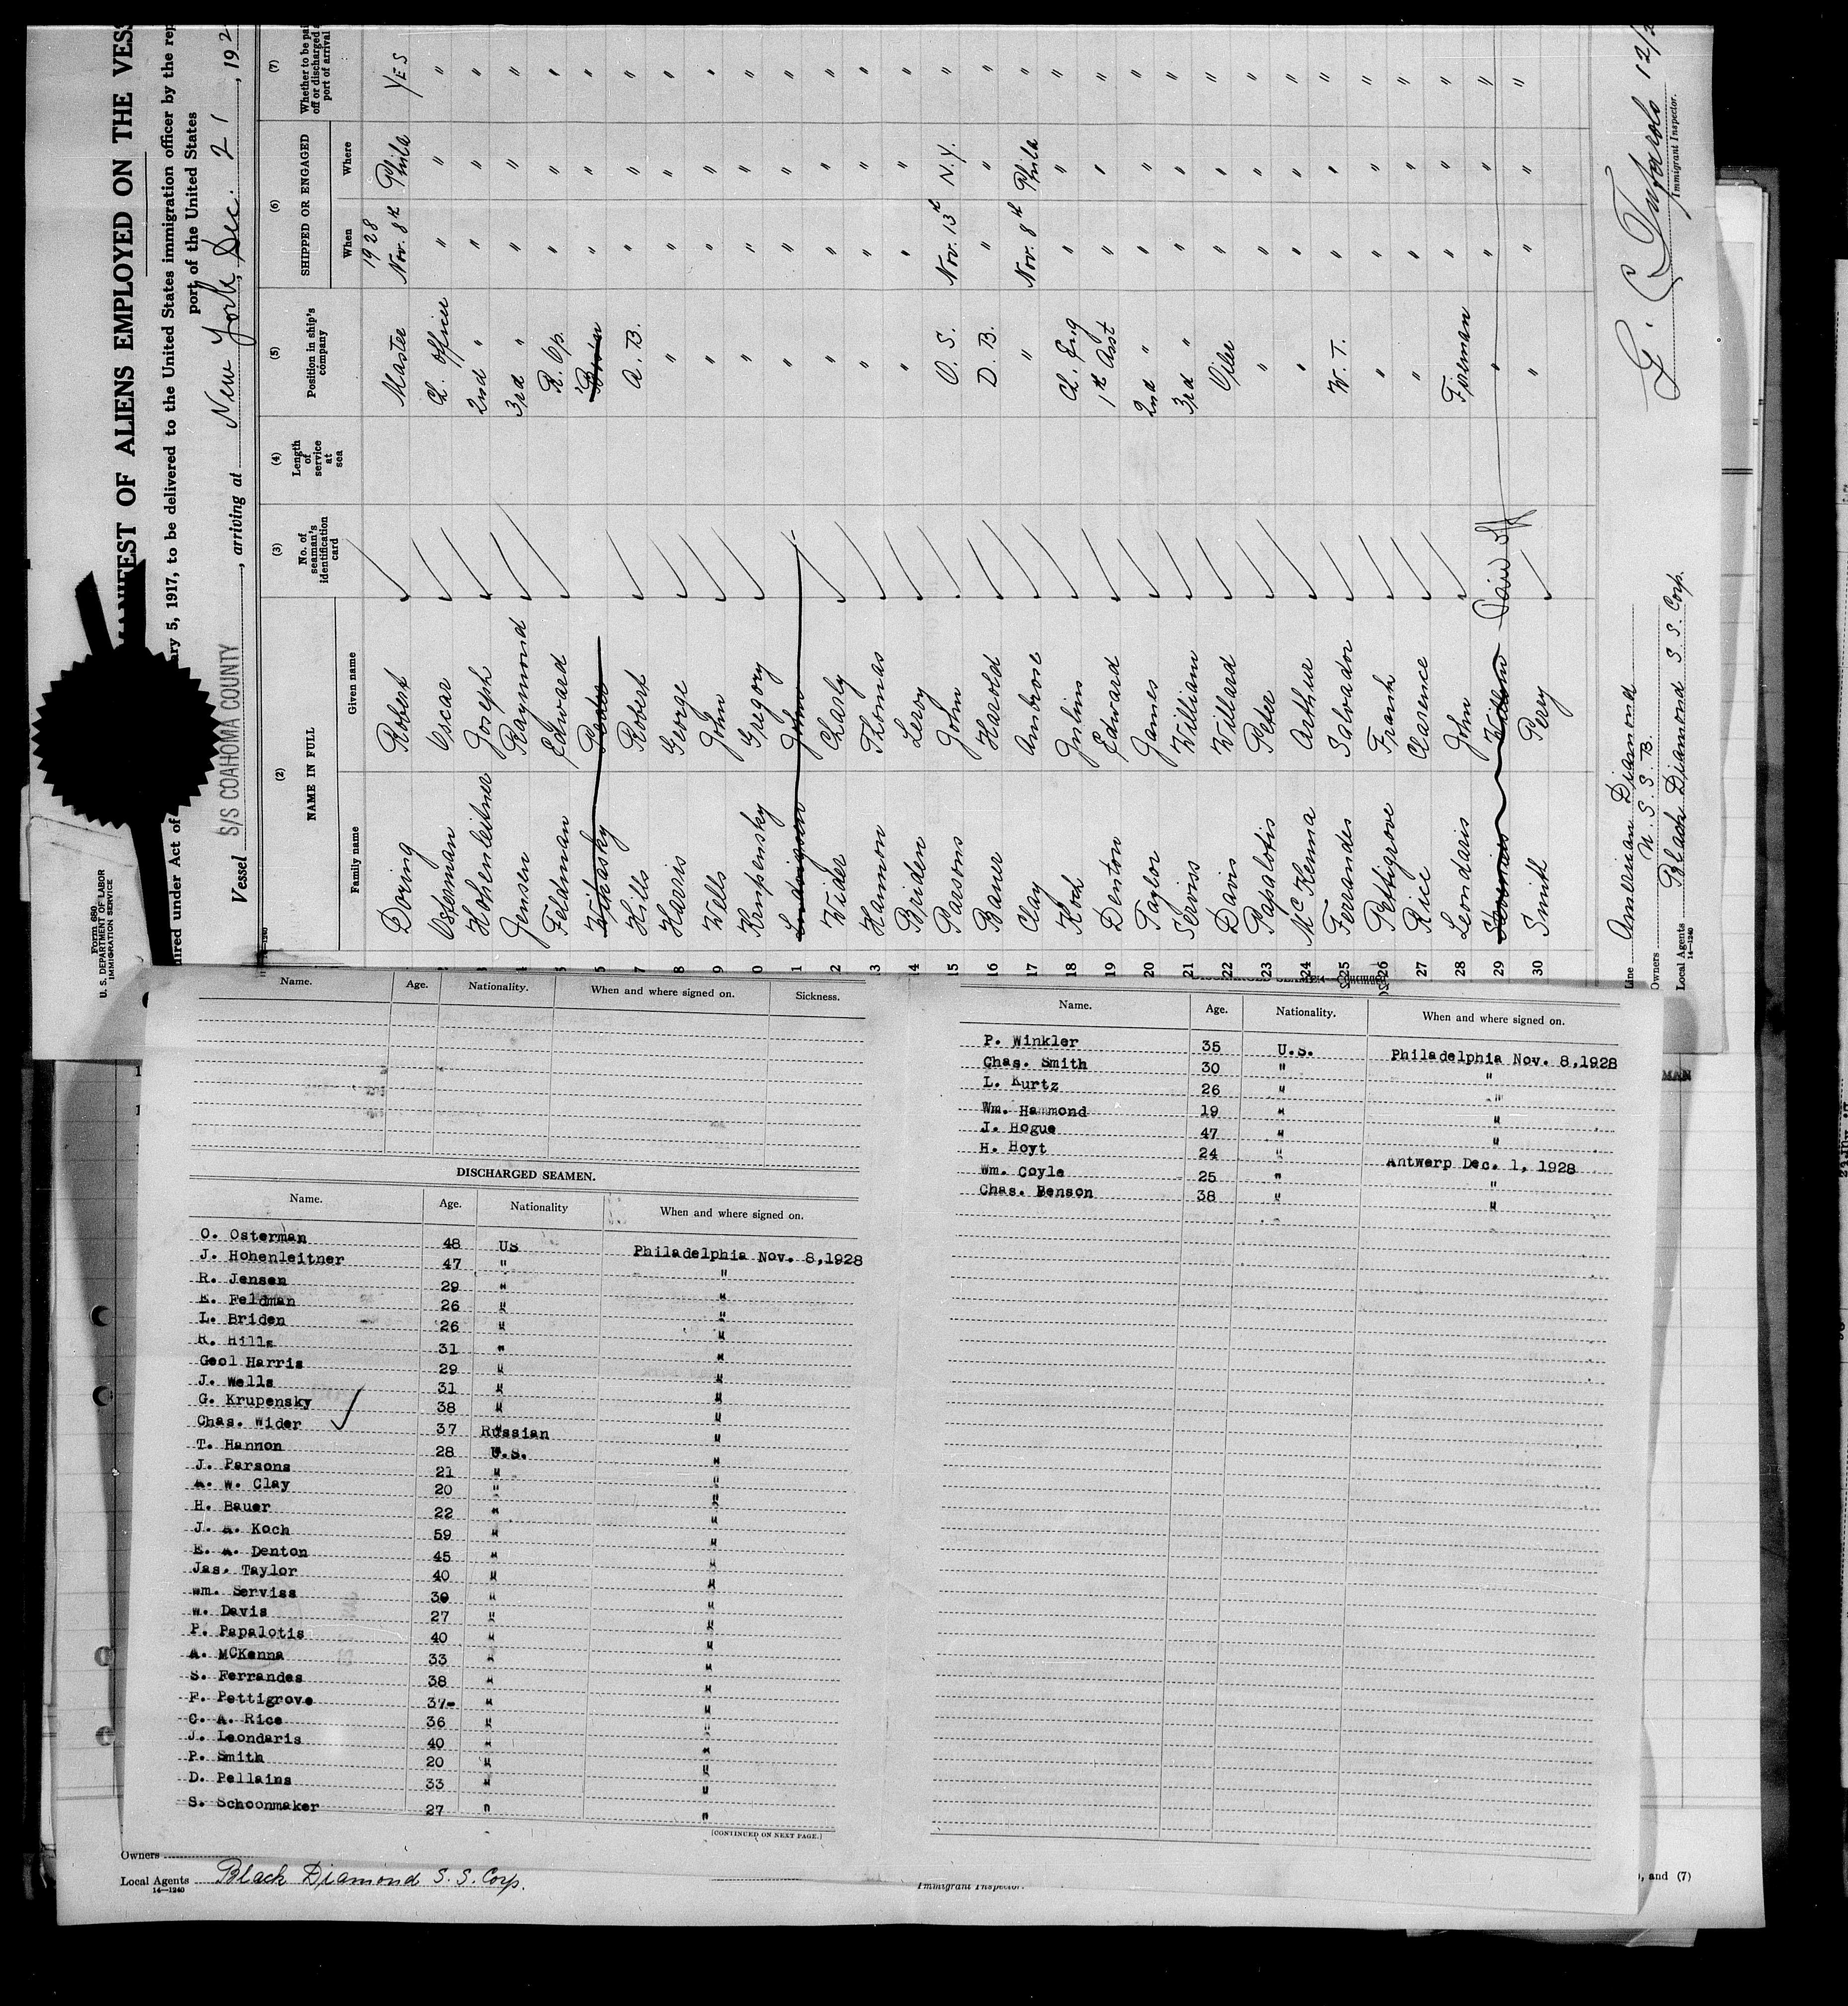 Form 680
U. S. DEPARTMENT OF LABOR
IMMIGRATION SERVICE
MANIFEST OF ALIENS EMPLOYED ON THE VESS
uired under Act of
ary 5, 1917, to be delivered to the United States immigration officer by the rep
port of the United States
Vessel S/S COAHOMA COUNTY, arriving at New York, Dec. 21, 192
(2) (3) (4) (5) (6) (7)
NAME IN FULL No. of seaman's identification card Length of service at sea Position in ship's company SHIPPED OR ENGAGED Whether to be pai off or discharged port of arrival
Family name Given name When Where
1928
Doring Robert Master Nov. 8th Phila YES
Osterman Oscar Ch. Officer " " "
3 Hohenleitner Joseph 2nd " " " "
4 Jensen Raymond 3rd " " " "
5 Feldman Edward R. Op. " " "
5 " " "
7 Hills Robert A. B. " " "
8 Harris George " " " "
9 Wells John " " " "
0 Krupensky Gregory " " " "
1 John " " " "
2 Wider Charly " " " "
13 Hannon Thomas " " " "
14 Briden Leroy " " " "
15 Parsons John O. S. Nov. 13th N.Y. "
16 Bauer Harold D. B. " " "
17 Clay Ambrose " Nov. 8th Phila "
18 Koch Ch. Eng " " "
19 Denton Edward 1st Asst " " "
20 Taylor James 2nd " " " "
21 Serviss William 3rd " " " "
22 Davis Willard Oiler " " "
23 Papalotis Peter " " " "
24 McKenna Arthur " " " "
25 Ferrandes Salvador W. T. " " "
26 Pettigrove Frank " " " "
27 Rice Clarence " " " "
28 Leondaris John Fireman " " "
29 William " " " "
30 Smith Percy " " " "
Line American Diamond
Owners U. S. S. B.
Local Agents Black Diamond S. S. Corp.
14—1240
Immigrant Inspector.
Name. Age. Nationality. When and where signed on. Sickness.
DISCHARGED SEAMEN.
Name. Age. Nationality When and where signed on.
O. Osterman 48 US Philadelphia Nov. 8,1928
J. Hohenleitner 47 " "
R. Jensen 29 " "
E. Feldman 26 " "
L. Briden 26 " "
R. Hills 31 " "
Geol Harris 29 " "
J. Wells 31 " "
G. Krupensky 38 " "
Chas. Wider 37 Russian "
T. Hannon 28 U.S. "
J. Parsons 21 " "
A. W. Clay 20 " "
H. Bauer 22 " "
J. A. Koch 59 " "
E. A. Denton 45 " "
Jas. Taylor 40 " "
Wm. Serviss 30 " "
W. Davis 27 " "
P. Papalotis 40 " "
A. McKenna 33 " "
S. Ferrandes 38 " "
F. Pettigrove 37- " "
C. A. Rice 36 " "
J. Leondaris 40 " "
P. Smith 20 " "
D. Pellains 33 " "
S. Schoonmaker 27 " "
[CONTINUED ON NEXT PAGE.]
Name. Age. Nationality. When and where signed on.
P. Winkler 35 U.S. Philadelphia Nov. 8,1928
Chas. Smith 30 " "
L. Kurtz 26 " "
Wm. Hammond 19 " "
J. Hogue 47 " "
H. Hoyt 24 " Antwerp Dec. 1, 1928
Wm. Coyle 25 " "
Chas. Benson 38 " "
Owners
Local Agents Black Diamond S. S. Corp.
14—1240
Immigrant Inspector.
, and (7)